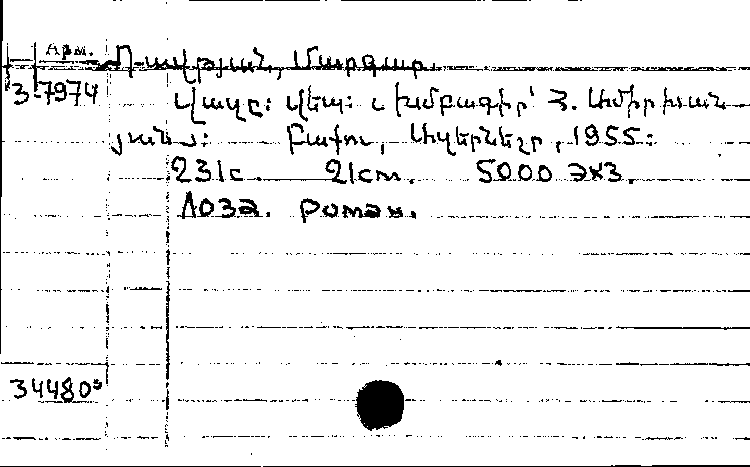 Арм.
Դավթյան, Մարգար.
3-7974
Վազը: Վեպ: Խմբագիր՝ Հ. Ամիրխան
յան: Բաքու, Ազերնեշր, 1955:
231с. 21см. 5000 экз.
Лоза. роман.
34480